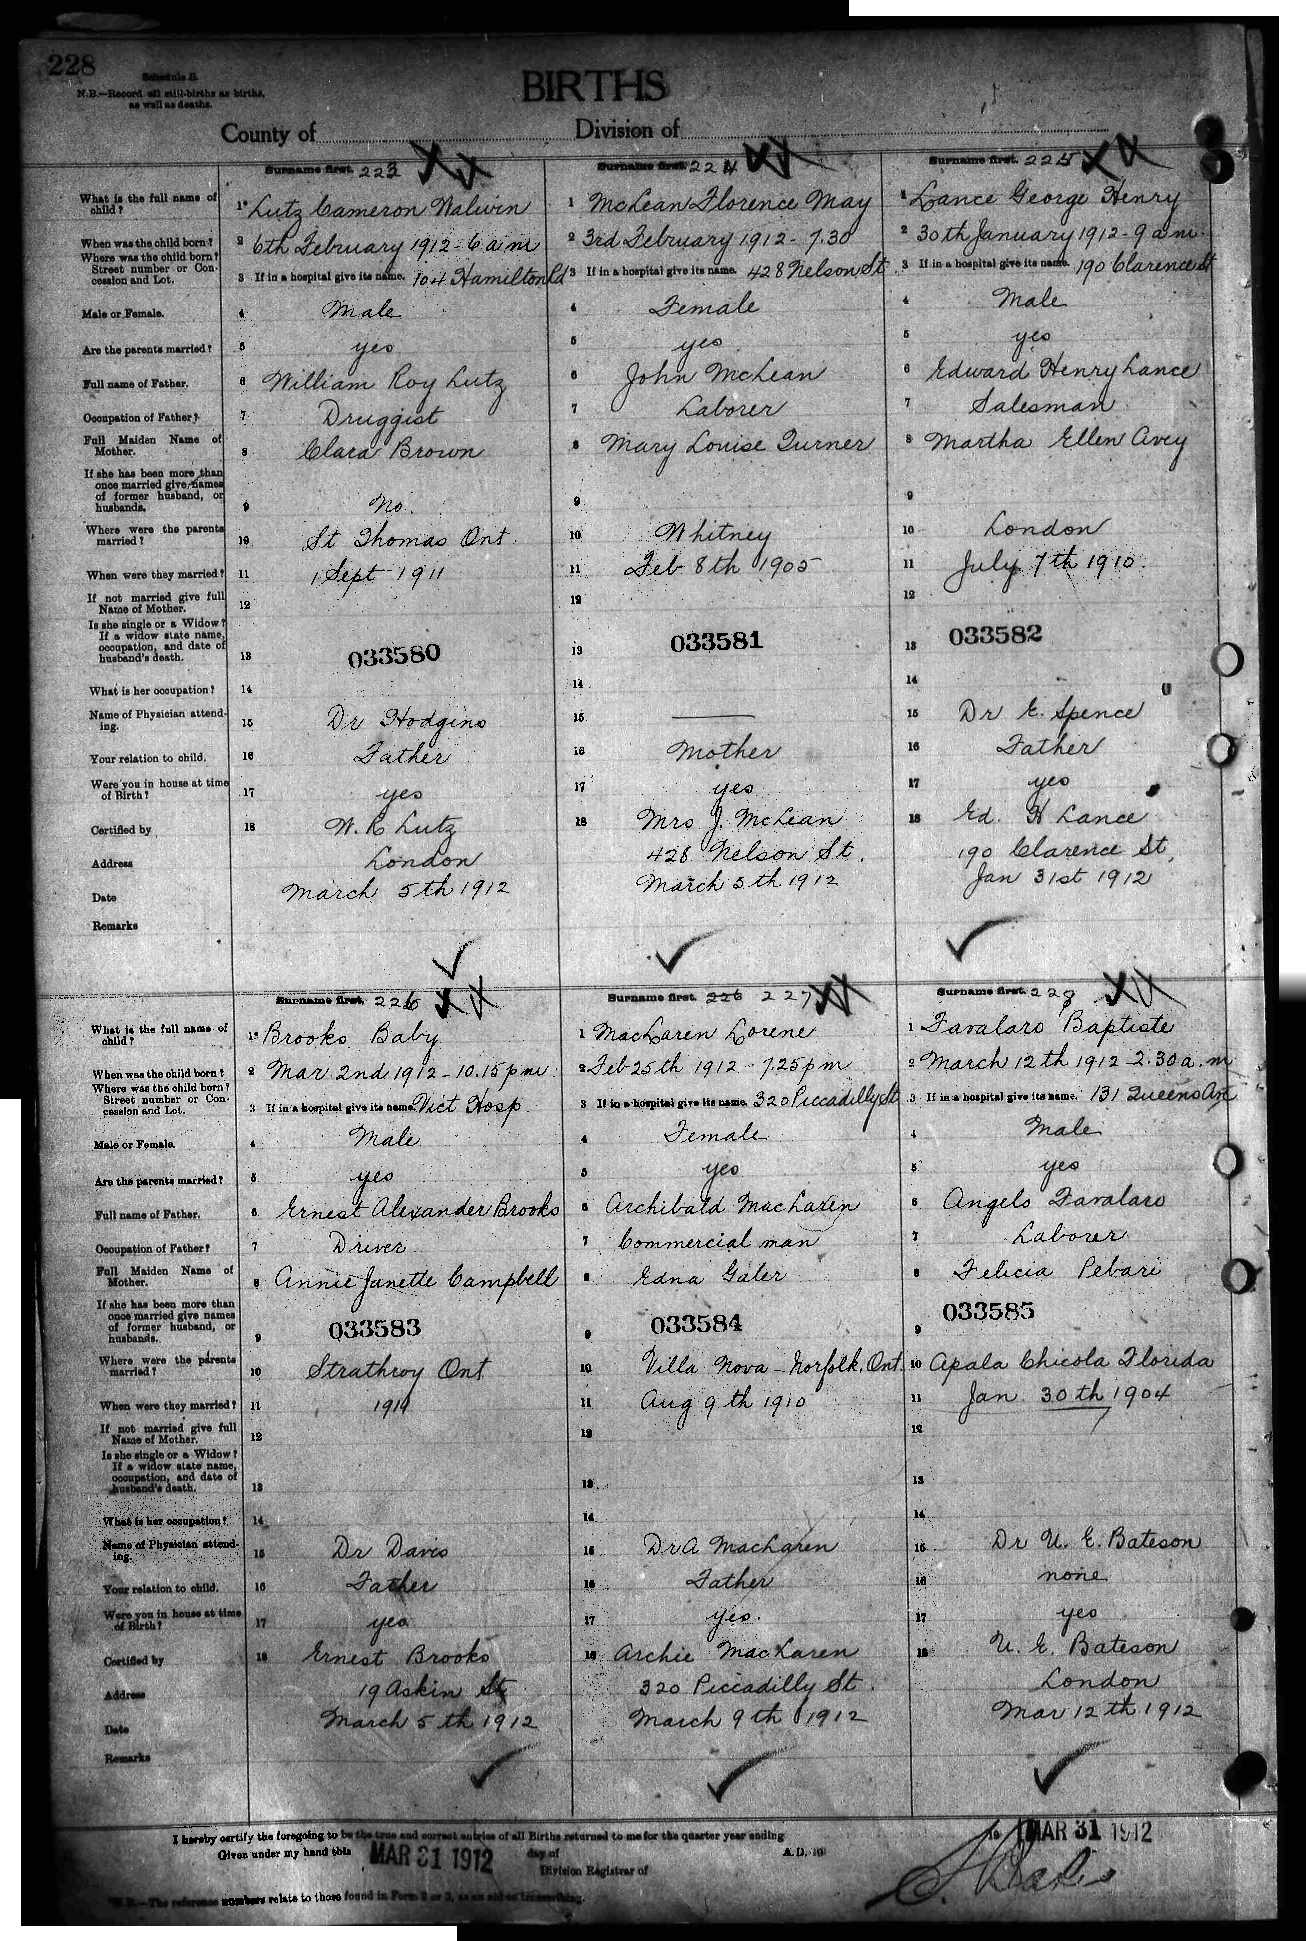 228
Schedule B.
N.B.—Record all still-births as births,
as well as deaths.
BIRTHS
County of
Division of
Surname first. 223
Surname first. 224
Surname first. 225
What is the full name of child?
1 Lutz Cameron Walwin
1 McLean Florence May
1 Lance George Henry
When was the child born?
2 6th February 1912 - 6 a m
2 3rd February 1912 - 7.30
2 30th January 1912 - 9 a m.
Where was the child born? Street number or Concession and Lot.
3 If in a hospital give its name. 104 Hamilton Rd
3 If in a hospital give its name. 428 Nelson St
3 If in a hospital give its name. 190 Clarence St
Male or Female.
4 Male
4 Female
4 Male
Are the parents married?
5 yes
5 yes
5 yes
Full name of Father.
6 William Roy Lutz
6 John McLean
6 Edward Henry Lance
Occupation of Father?
7 Druggist
7 Laborer
7 Salesman
Full Maiden Name of Mother.
8 Clara Brown
8 Mary Louise Turner
8 Martha Ellen Avey
If she has been more than once married give names of former husband, or husbands.
9 No.
9
9
Where were the parents married?
10 St Thomas Ont.
10 Whitney
10 London
When were they married?
11 1 Sept 1911
11 Feb 8th 1905
11 July 7th 1910.
If not married give full Name of Mother.
12
12
12
Is she single or a Widow? If a widow state name, occupation, and date of husband's death.
13 033580
13 033581
13 033582
What is her occupation?
14
14
14
Name of Physician attending.
15 Dr Hodgins
15 ———
15 Dr E. Spence
Your relation to child.
16 Father
16 Mother
16 Father
Were you in house at time of Birth?
17 yes
17 yes
17 yes
Certified by
18 W. R Lutz
18 Mrs J. McLean
18 Ed. H Lance
Address
London
428 Nelson St.
190 Clarence St,
Date
March 5th 1912
March 5th 1912
Jan 31st 1912
Remarks
Surname first. 226
Surname first. 226 227
Surname first. 228
What is the full name of child?
1 Brooks Baby
1 MacLaren Lorene
1 Favalaro Baptiste
When was the child born?
2 Mar 2nd 1912 - 10.15 p m
2 Feb 25th 1912 - 7.25 p m
2 March 12th 1912 - 2.30 a. m
Where was the child born? Street number or Concession and Lot.
3 If in a hospital give its name. Vict Hosp.
3 If in a hospital give its name. 320 Piccadilly St
3 If in a hospital give its name. 131 Queens Ave
Male or Female.
4 Male
4 Female
4 Male
Are the parents married?
5 yes
5 yes
5 yes
Full name of Father.
6 Ernest Alexander Brooks
6 Archibald MacLaren
6 Angelo Favalaro
Occupation of Father?
7 Driver
7 Commercial man
7 Laborer
Full Maiden Name of Mother.
8 Annie Janette Campbell
8 Edna Galer
8 Felicia Pebari
If she has been more than once married give names of former husband, or husbands.
9 033583
9 033584
9 033585
Where were the parents married?
10 Strathroy Ont
10 Villa Nova - Norfolk. Ont.
10 Apala Chicola Florida
When were they married?
11 1911
11 Aug 9th 1910
11 Jan 30th 1904
If not married give full Name of Mother.
12
12
12
Is she single or a Widow? If a widow state name, occupation, and date of husband's death.
13
13
13
What is her occupation?
14
14
14
Name of Physician attending.
15 Dr Davis
15 Dr A MacLaren
15 Dr U. E. Bateson
Your relation to child.
16 Father
16 Father
16 none
Were you in house at time of Birth?
17 yes
17 yes.
17 yes
Certified by
18 Ernest Brooks
18 Archie MacLaren
18 U. E. Bateson
Address
19 Askin St
320 Piccadilly St.
London
Date
March 5th 1912
March 9th 1912
Mar 12th 1912
Remarks
I hereby certify the foregoing to be the true and correct entries of all Births returned to me for the quarter year ending MAR 31 1912
Given under my hand this MAR 31 1912 day of A.D. 19
Division Registrar of
N.B.—The reference numbers relate to those found in Form 2 or 3, as an aid on transcribing.